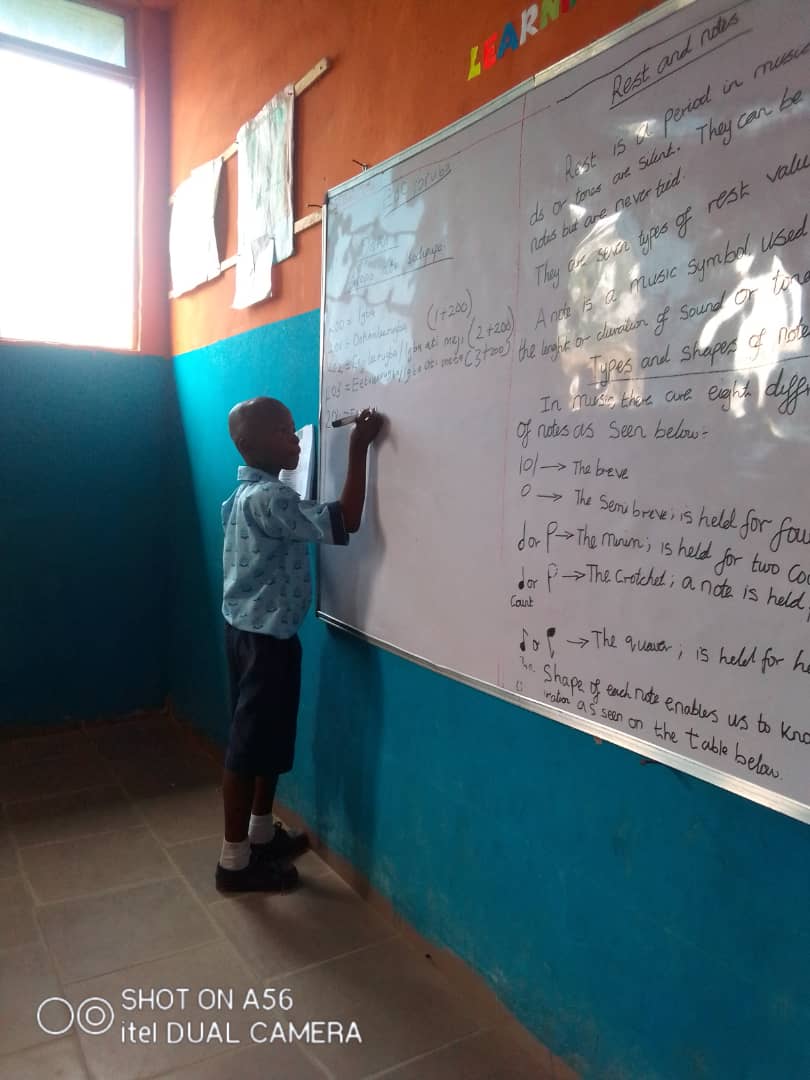 LEARN
Yoruba
200 = Igba
(1+200)
(2+200)
203 = / Igba ati meta (3+200)
Rest and notes
Rest is a period in music
ds or tones are silent. They can be
notes but are never tied.
They are seven types of rest value
A note is a music symbol used
the lenght or duration of sound or tone
Types and shapes of note
In music, there are eight diff
of notes as seen below:-
|O| → The breve
O → The Semi breve; is held for fou
or → The minim; is held for two cou
or → The Crotchet; a note is held,
Count
or → The quaver; is held for ha
The Shape of each note enables us to kno
ration as seen on the table below.
SHOT ON A56
itel DUAL CAMERA